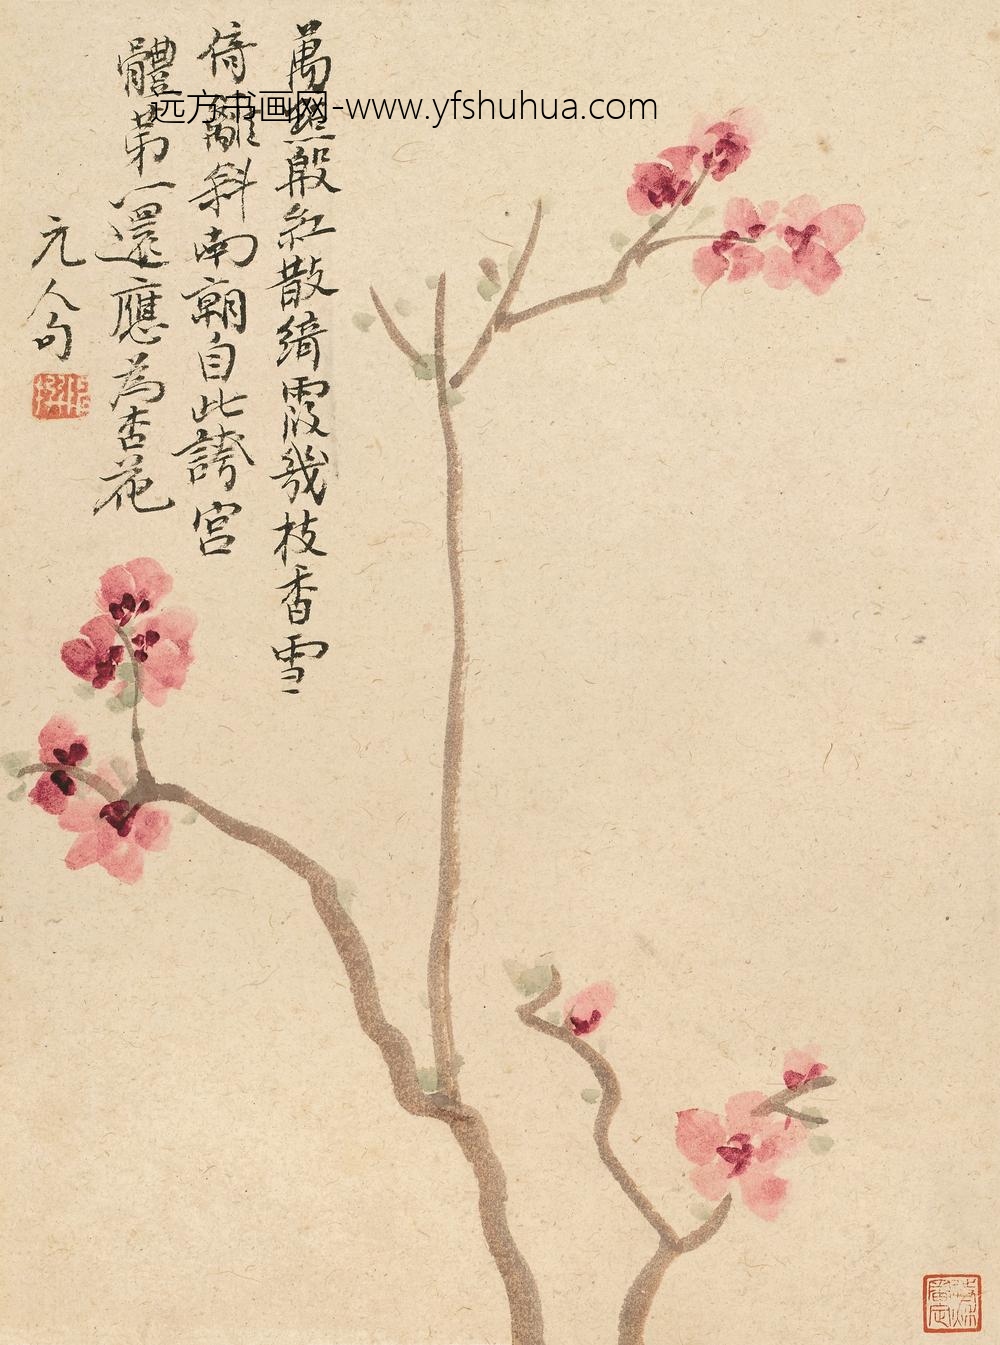 萬點殷紅散綺霞幾枝香雪
倚籬斜南朝自此誇宮
體第一還應為杏花
元人句
远方书画网-www.yfshuhua.com